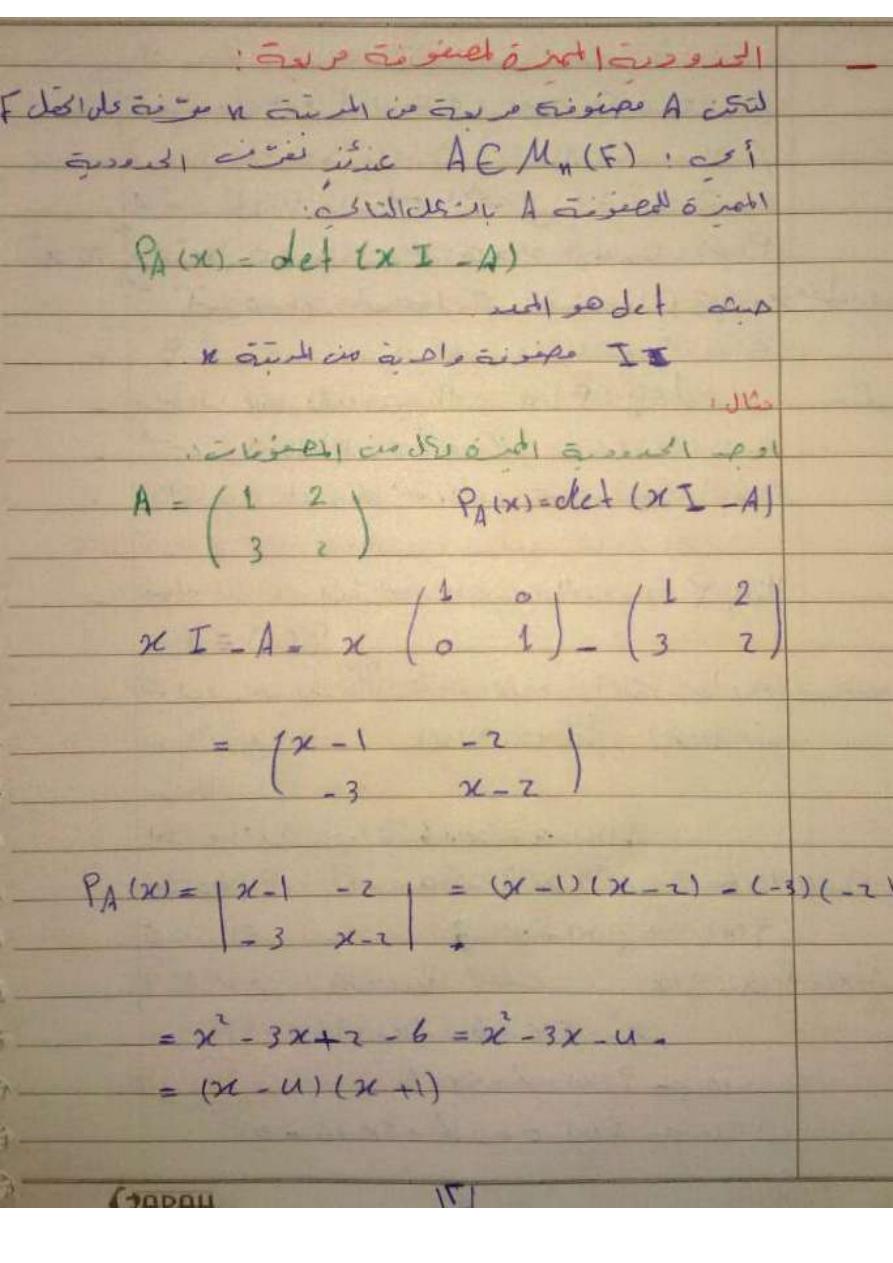 الحدودية المميزة لمصفوفة مربعة :
لتكن A مصفوفة مربعة من المرتبة n معرّفة على الحقل F
أي : A ∈ M_n(F) عندئذٍ نعرّف الحدودية
المميزة للمصفوفة A بالشكل التالي:
P_A(x) = det (x I - A)
حيث det هو المحدد
I مصفوفة واحدية من المرتبة n
مثال:
اوجد الحدودية المميزة لكل من المصفوفات:
A = ( 1 2 P_A(x) = det (x I - A)
3 2 )
x I - A = x ( 1 0 0 1 ) - ( 1 2 3 2 )
= ( x - 1 -2
-3 x - 2 )
P_A(x) = | x-1 -2 | = (x-1)(x-2) - (-3)(-2)
| -3 x-2 | .
= x² - 3x + 2 - 6 = x² - 3x - 4 .
= (x - 4)(x + 1)
١٢١